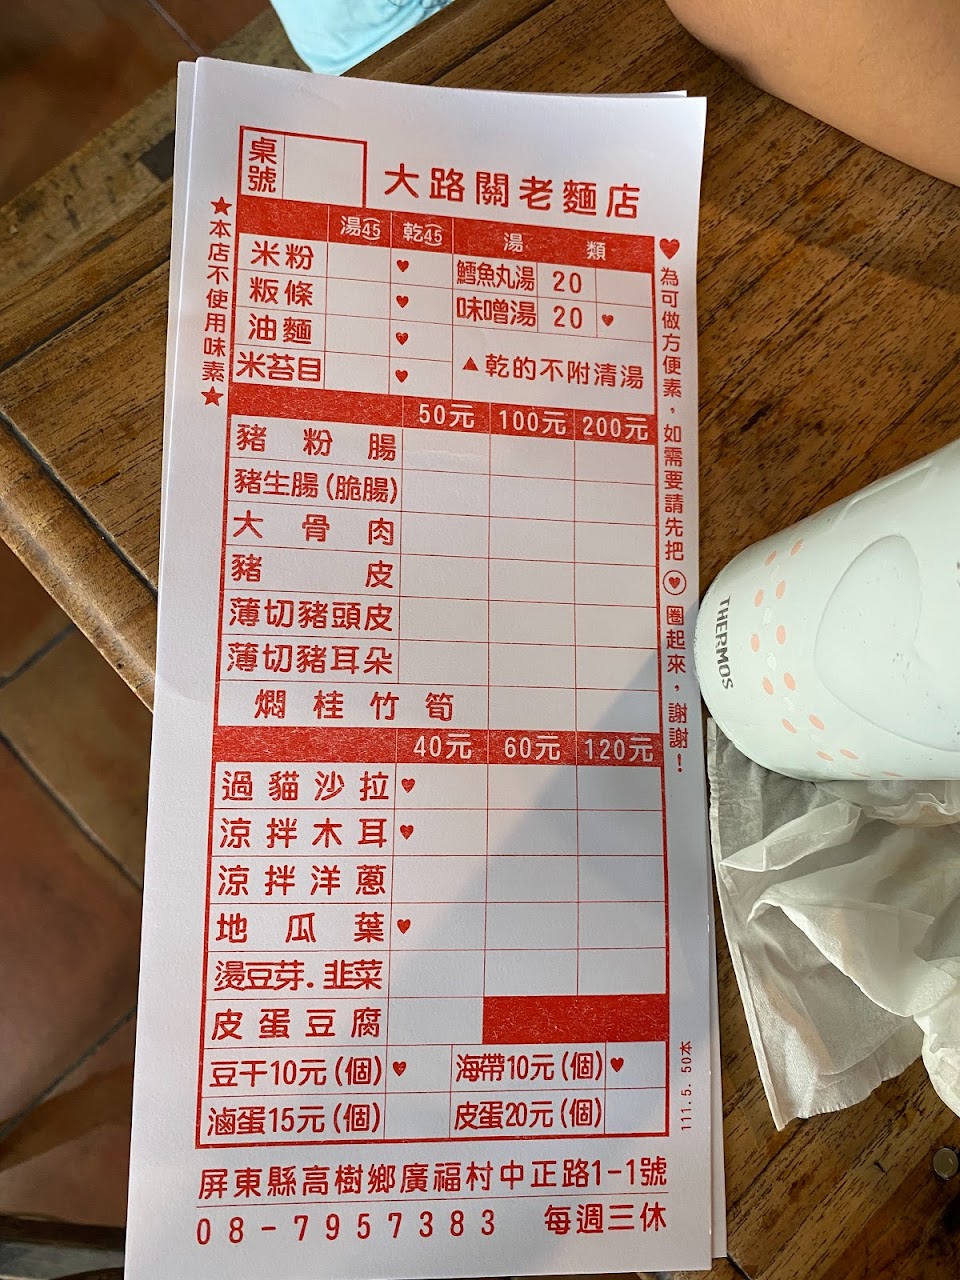 桌號
大路關老麵店
★本店不使用味素★
湯45 乾45 湯類
米粉 ♥ 鱈魚丸湯 20
粄條 ♥ 味噌湯 20 ♥
油麵 ♥
米苔目 ♥ ▲乾的不附清湯
50元 100元 200元
豬粉腸
豬生腸(脆腸)
大骨肉
豬皮
薄切豬頭皮
薄切豬耳朵
燜桂竹筍
40元 60元 120元
過貓沙拉 ♥
涼拌木耳 ♥
涼拌洋蔥
地瓜葉 ♥
燙豆芽.韭菜
皮蛋豆腐
豆干10元(個) ♥ 海帶10元(個) ♥
滷蛋15元(個) 皮蛋20元(個)
♥為可做方便素，如需要請先把♥圈起來，謝謝！
111.5. 50本
屏東縣高樹鄉廣福村中正路1-1號
08-7957383 每週三休
THERMOS